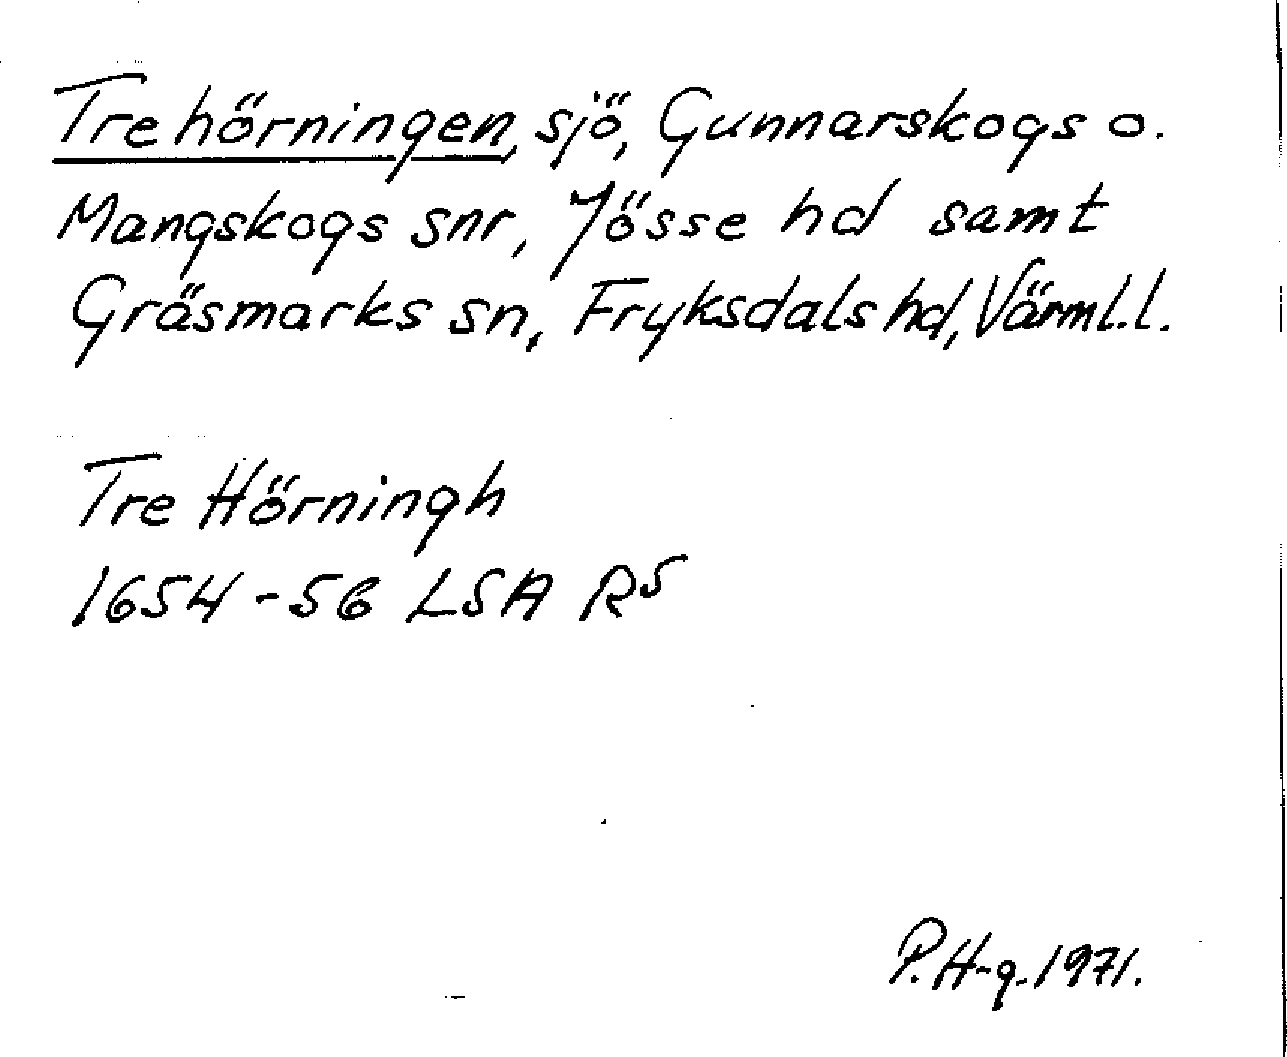 Trehörningen, sjö, Gunnarskogs o.
Mangskogs snr, Jösse hd samt
Gräsmarks sn, Fryksdals hd, Värml. l.
Tre Hörningh
1654-56 LSA R5
P. H-g. 1971.